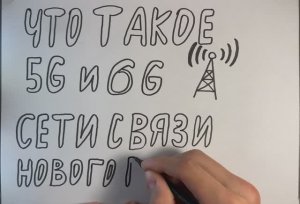 ЧТО ТАКОЕ
5G и 6G
СЕТИ СВЯЗИ
НОВОГО